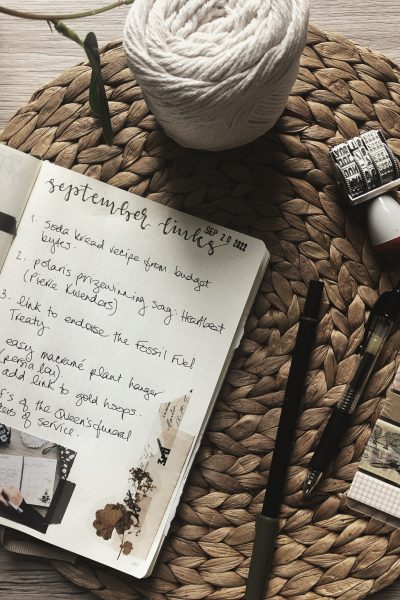 september links
SEP 20 2022
1. soda bread recipe from budget
bytes.
2. polaris prizewinning song: Heartbeat
(Pierre Kwenders)
3. link to endorse the Fossil Fuel
Treaty.
easy macramé plant hanger
(persia lou)
add link to gold hoops.
of the Queen's funeral
of service.